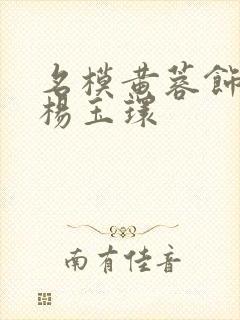 名模黄蓉飾
楊玉環
南有佳音